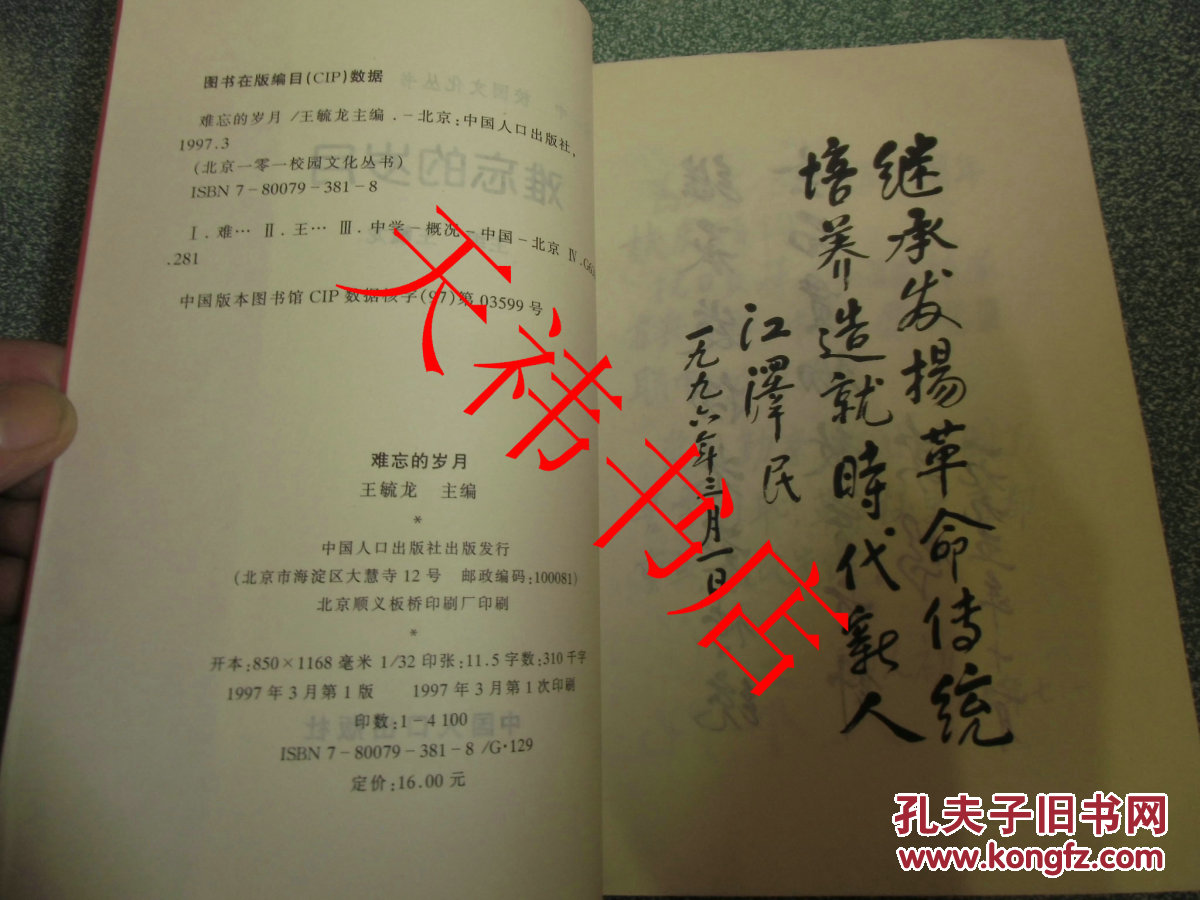 图书在版编目(CIP)数据
难忘的岁月/王毓龙主编.-北京:中国人口出版社,
1997.3
(北京一零一校园文化丛书)
ISBN 7-80079-381-8
Ⅰ.难… Ⅱ.王… Ⅲ.中学-概况-中国-北京 Ⅳ.G6
.281
中国版本图书馆CIP数据核字(97)第03599号
难忘的岁月
王毓龙 主编
*
中国人口出版社出版发行
(北京市海淀区大慧寺12号 邮政编码:100081)
北京顺义板桥印刷厂印刷
*
开本:850×1168毫米 1/32 印张:11.5 字数:310千字
1997年3月第1版 1997年3月第1次印刷
印数:1-4100
ISBN 7-80079-381-8/G·129
定价:16.00元
继承发揚革命传统
培养造就時代新人
江澤民
一九九六年三月一日
天祎书店
孔夫子旧书网
www.kongfz.com